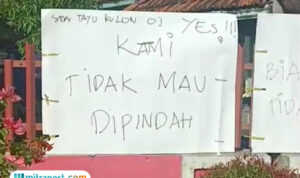 SDN TAYU KULON 03 YES!!!
KAMI
TIDAK MAU
DIPINDAH
BIA
TIDA
mitrapost.com